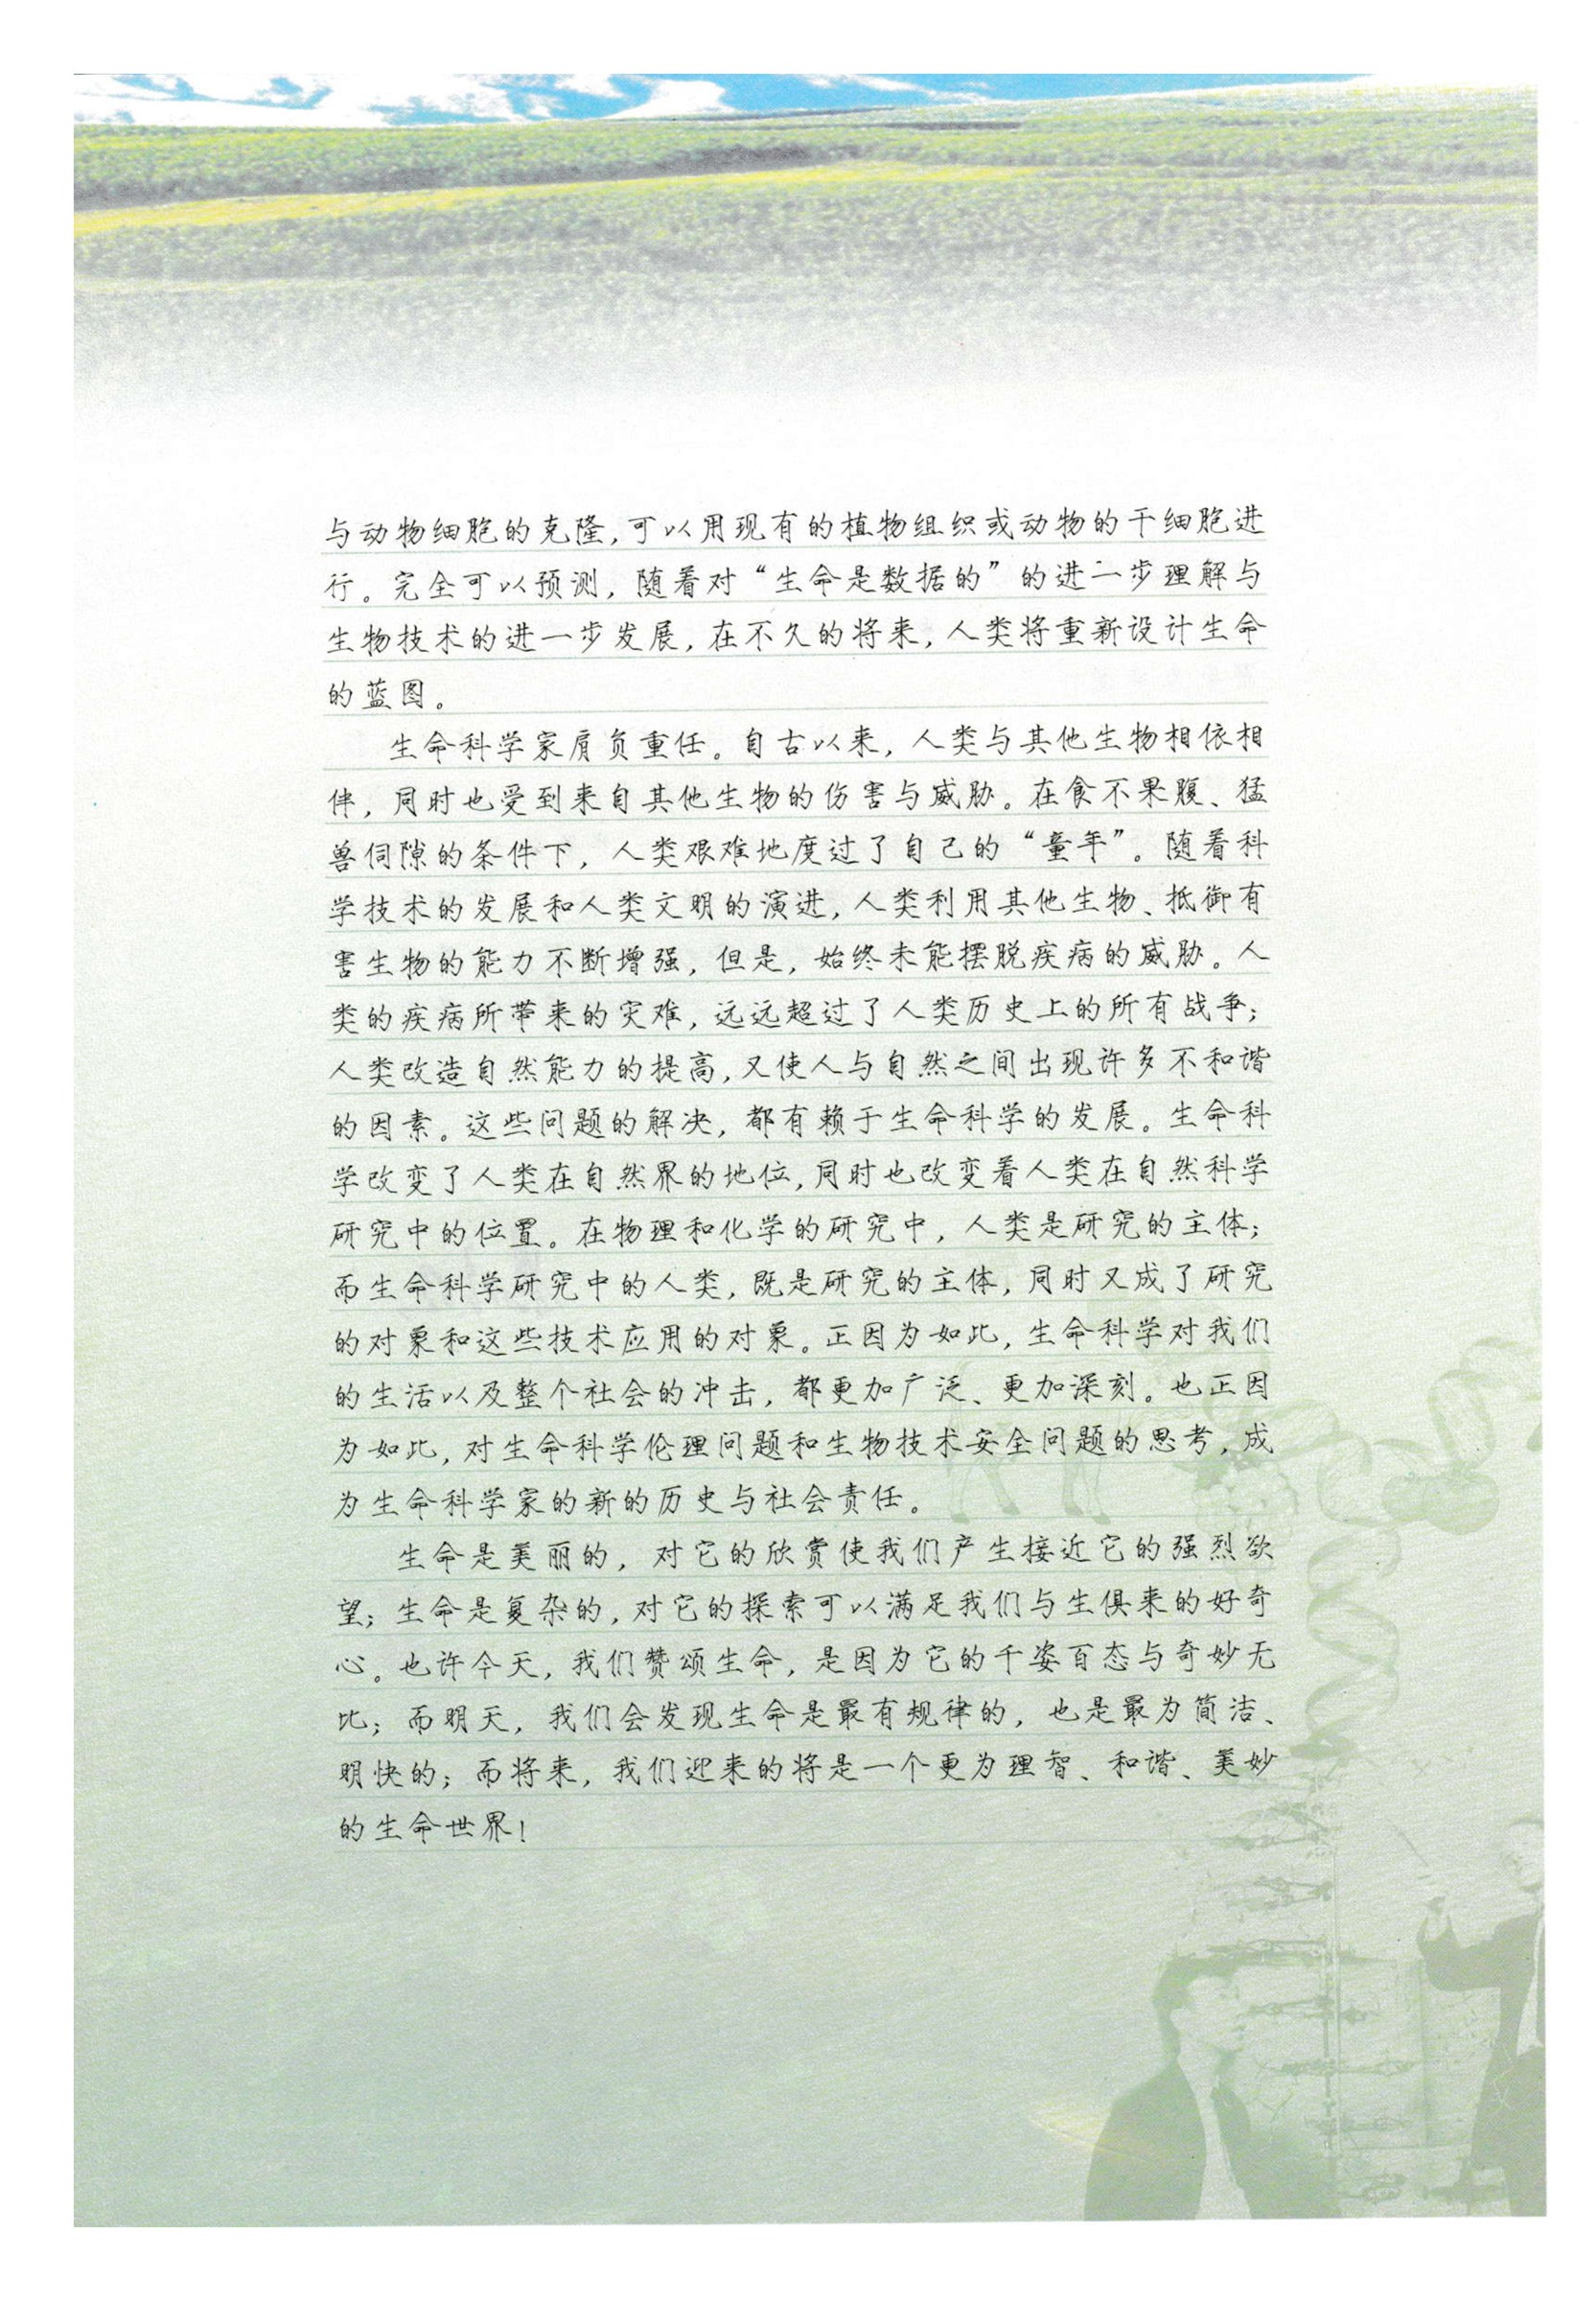 与动物细胞的克隆,可以用现有的植物组织或动物的干细胞进
行。完全可以预测,随着对“生命是数据的”的进一步理解与
生物技术的进一步发展,在不久的将来,人类将重新设计生命
的蓝图。
生命科学家肩负重任。自古以来,人类与其他生物相依相
伴,同时也受到来自其他生物的伤害与威胁。在食不果腹、猛
兽伺隙的条件下,人类艰难地度过了自己的“童年”。随着科
学技术的发展和人类文明的演进,人类利用其他生物、抵御有
害生物的能力不断增强,但是,始终未能摆脱疾病的威胁。人
类的疾病所带来的灾难,远远超过了人类历史上的所有战争;
人类改造自然能力的提高,又使人与自然之间出现许多不和谐
的因素。这些问题的解决,都有赖于生命科学的发展。生命科
学改变了人类在自然界的地位,同时也改变着人类在自然科学
研究中的位置。在物理和化学的研究中,人类是研究的主体;
而生命科学研究中的人类,既是研究的主体,同时又成了研究
的对象和这些技术应用的对象。正因为如此,生命科学对我们
的生活以及整个社会的冲击,都更加广泛、更加深刻。也正因
为如此,对生命科学伦理问题和生物技术安全问题的思考,成
为生命科学家的新的历史与社会责任。
生命是美丽的,对它的欣赏使我们产生接近它的强烈欲
望;生命是复杂的,对它的探索可以满足我们与生俱来的好奇
心。也许今天,我们赞颂生命,是因为它的千姿百态与奇妙无
比;而明天,我们会发现生命是最有规律的,也是最为简洁、
明快的;而将来,我们迎来的将是一个更为理智、和谐、美妙
的生命世界!